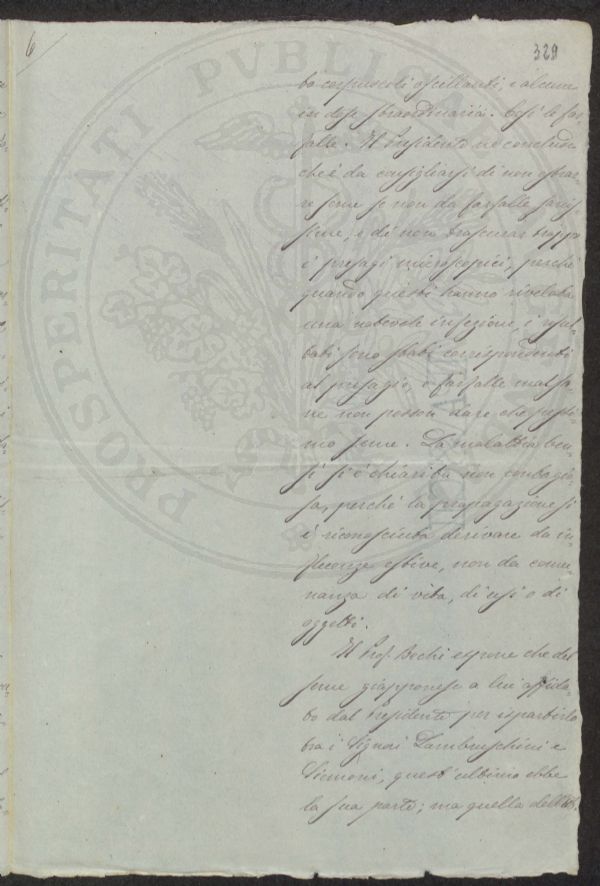 6
329
to corpuscoli oscillanti, e alcune
in dose straordinaria. Così le far-
falle. Il Presidente ne conclude
che è da consigliarsi di non estrar-
re seme se non da farfalle sanis-
sime, e di non trascurar troppo
i presagi microscopici, perchè
quando questi hanno rivelato
una notevole infezione, i resul-
tati sono stati corrispondenti
al presagio, e farfalle malsa-
ne non posson dare che pessi-
mo seme. La malattia ben-
sì si è chiarita non contagio-
sa, perchè la propagazione si
è riconosciuta derivare da in-
fluenze estive, non da comu-
nanza di vita, di usi o di
oggetti.
Il Prof. Bechi espone che del
seme giapponese a lui affida-
to dal Presidente per ispartirlo
tra i Signori Lambruschini e
Siemoni, quest'ultimo ebbe
la sua parte; ma quella dell'
PROSPERITATI PUBLICAE